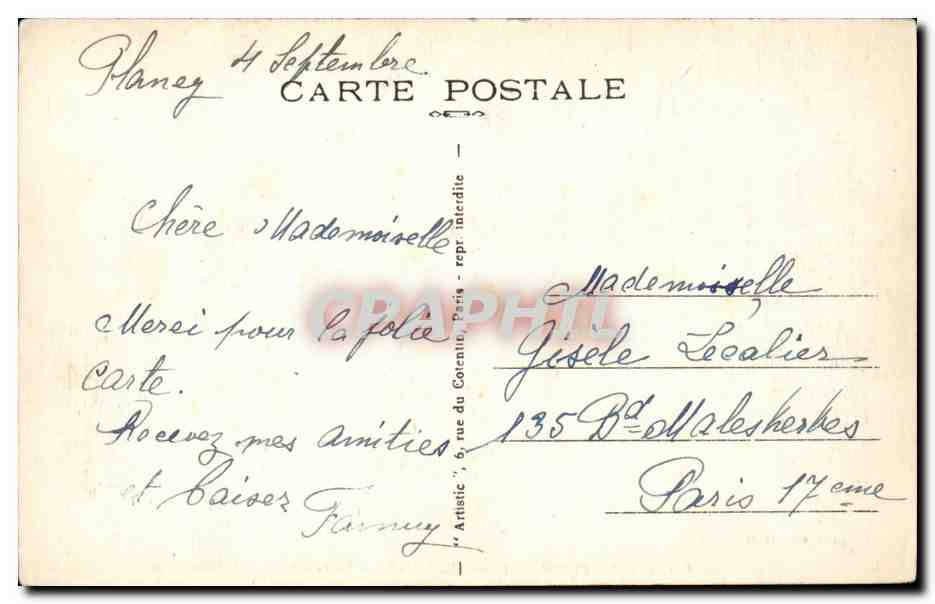 Planey 4 Septembre
CARTE POSTALE
Chère Mademoiselle
Merci pour la jolie
carte.
Recevez mes amitiés
et baiser
Fannny
"Artistic", 6, rue du Cotentin, Paris - repr. interdite
Mademoiselle
Gisèle Lecalier
135 Bd Malesherbes
Paris 17eme
CRAPHIL